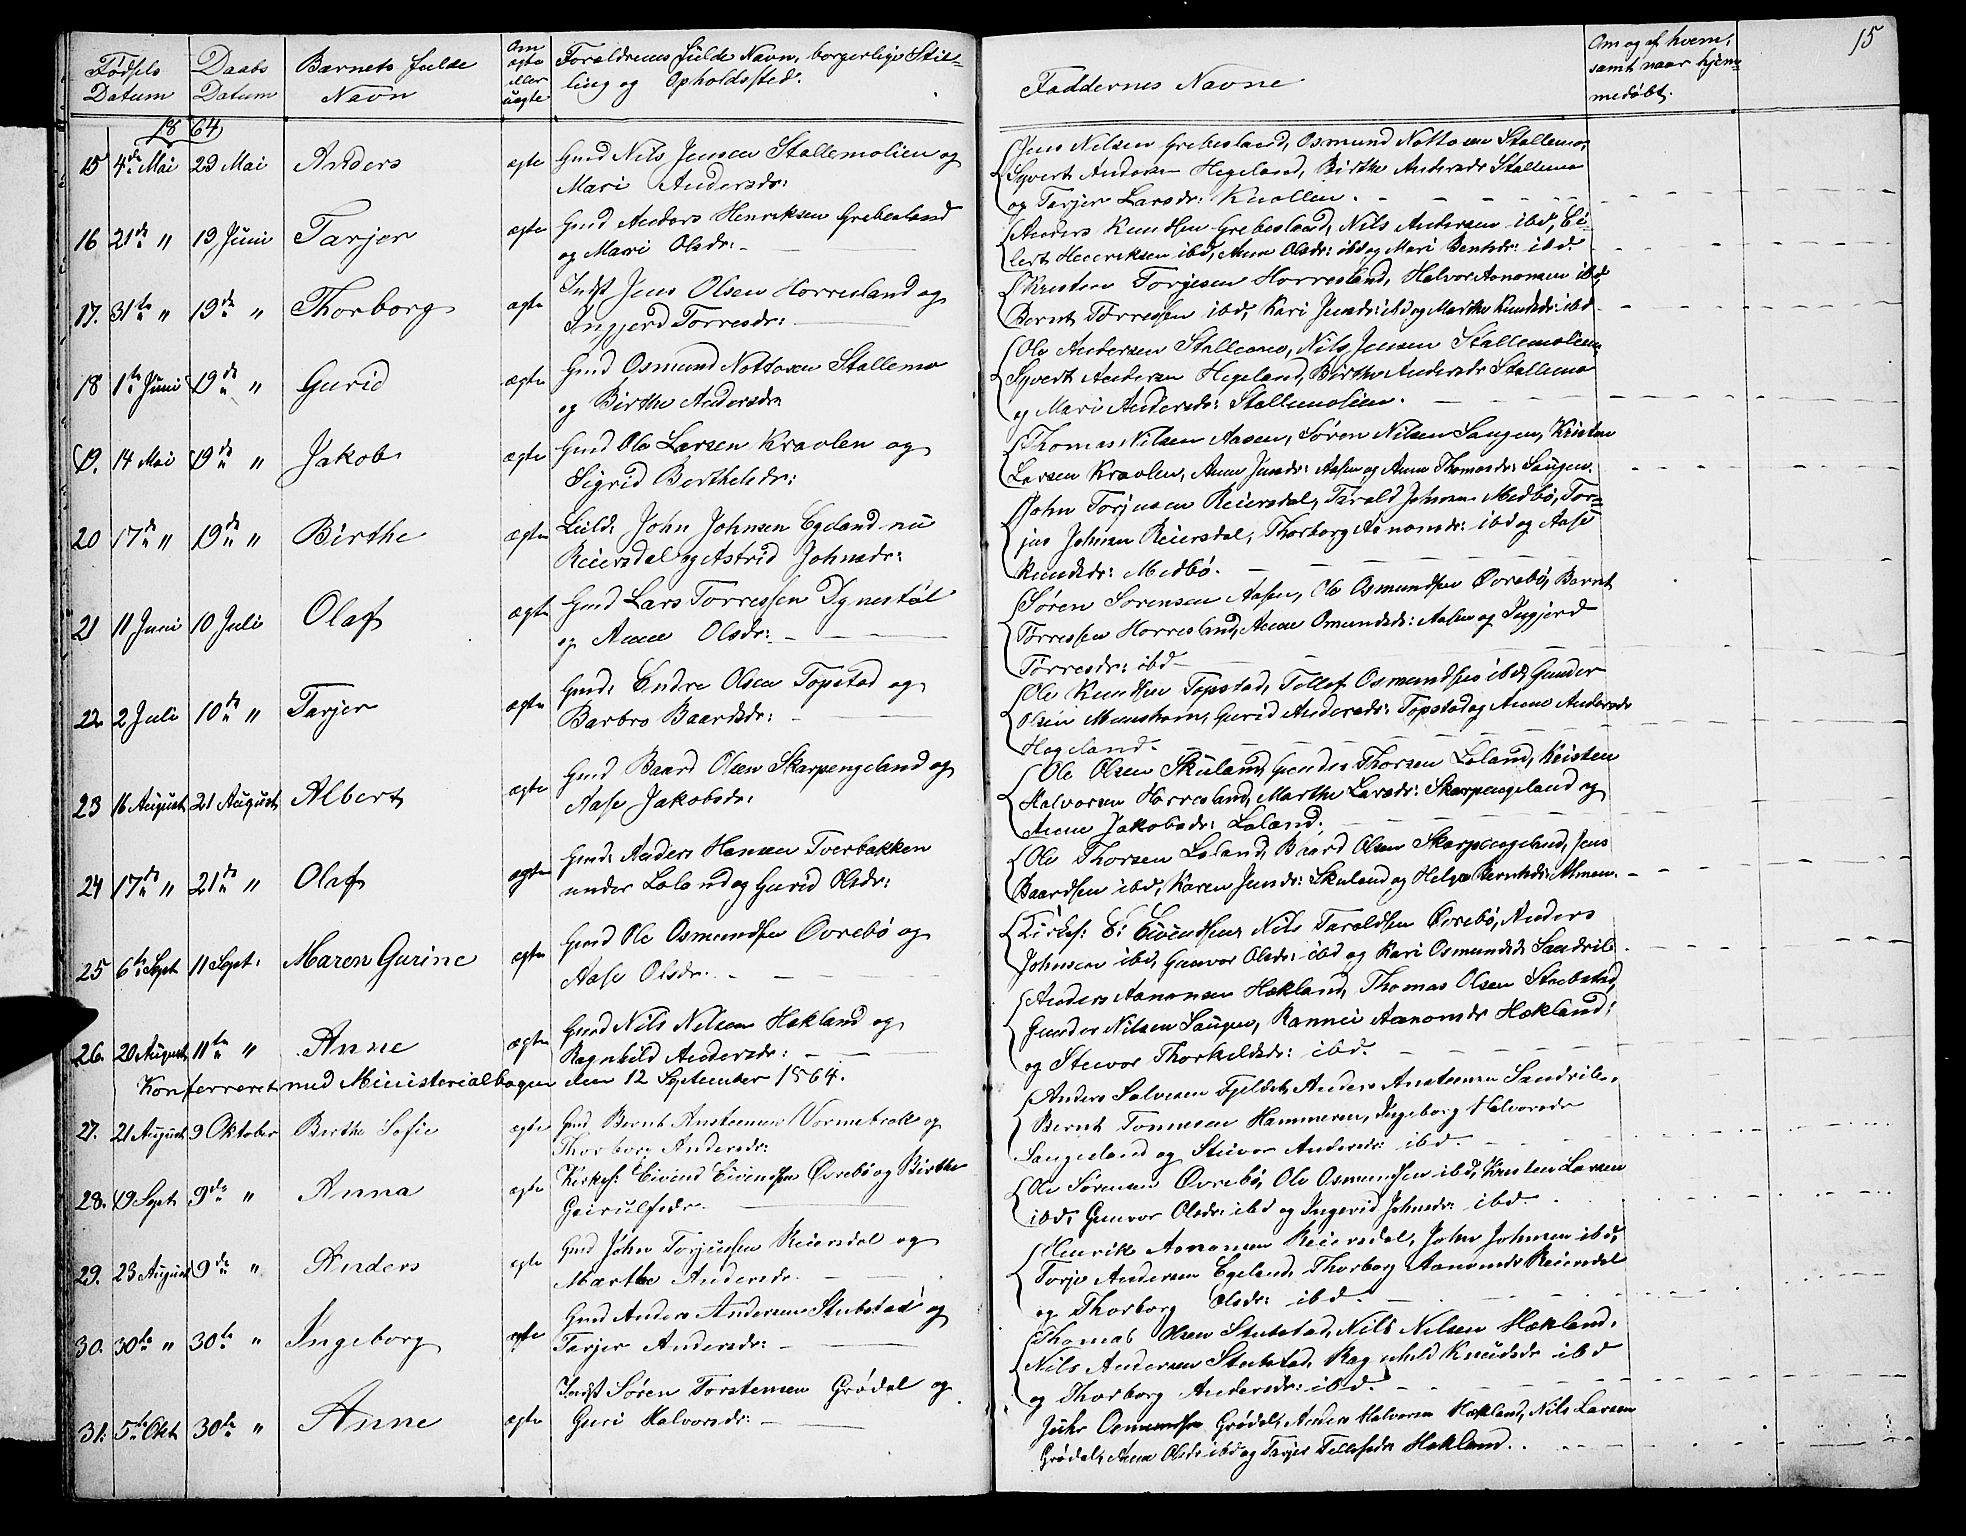 15
Fødsels Datum
Daabs Datum
Barnets fulde Navn
Om ægte eller uægte
Forældrenes fulde Navn, borgerlige Stil-
ling og Opholdssted.
Faddernes Navne
Om og af hvem, samt naar hjem-
medøbt.
1864
15 4de Mai 23 Mai Anders ægte Gmd Nils Jensen Stallemolien og
Mari Andersdr:
Jens Nilsen Grebesland, Osmund Nottosen Stallemo,
Syvert Andersen Hegeland, Birthe Andersdr Stallemo
og Tarjer Larsdr: Knollen.
16 21de " 19 Juni Tarjer ægte Gmd Anders Henriksen Grebesland
og Mari Olsdr:
Anders Knudsen Grebesland, Nils Andersen ibd, Ei-
lert Henriksen ibd, Anne Olsdr: ibd og Mari Bentsdr: ibd
17. 31te " 19de " Thorborg ægte Indst Jens Olsen Horresland og
Ingjerd Torresdr:
Kristen Torjesen Horresland, Halvor Aanonsen ibd,
Bernt Torressen ibd, Kari Jensdr: ibd og Marthe Knudsdr: ibd
18 1te Juni 19de " Gurid ægte Gmd Osmund Nottosen Stallemo
og Birthe Andersdr
Ole Andersen Stallemo, Nils Jensen Stallemolien,
Syvert Andersen Hegeland, Birthe Andersdr Stallemo
og Mari Andersdr: Stallemolien.
19. 14 Mai 19de " Jakob ægte Gmd Ole Larsen Kraolen og
Sigrid Berthelsdr:
Thomas Nilsen Aasen, Søren Nilsen Saugen, Kristen
Larsen Kraolen, Anne Jensdr: Aasen og Anne Thomasdr: Saugen.
20 17de " 19de " Birthe ægte Leild: John Johnsen Egeland nu
Reiersdal og Astrid Johnsdr:
John Torjusen Reiersdal, Tarald Johnsen Medbø, Tor-
jus Johnsen Reiersdal, Thorborg Aanonsdr: ibd og Aase
Knudsdr: Medbø.
21 11 Juni 10 Juli Olaf ægte Gmd Lars Torressen Dynestøl
og Anne Olsdr:
Søren Sørensen Aasen, Ole Osmundsen Øvrebø, Bernt
Torressen Horresland, Anne Omundsdr: Aasen og Ingjerd
Torresdr: ibd
22. 2 Juli 10de " Tarjer ægte Gmd: Endre Olsen Topstad og
Barbro Baardsdr:
Ole Knudsen Topstad, Tellef Osmundsen ibd, Gunder
Olsen Monshom, Gurid Andersdr: Topstad og Anne Andersdr
Hageland.
23 16 August 21 August Albert ægte Gmd Baard Olsen Skarpengeland og
Aase Jakobsdr:
Ole Olsen Skuland, Gunder Thorsen Loland, Kristen
Halvorsen Horresland, Marthe Larsdr: Skarpengeland og
Anne Jakobsdr: Loland.
24 17de " 21de " Olaf ægte Gmd: Anders Hansen Tverbakken
under Loland og Gurid Olsdr:
Ole Thorsen Loland, Baard Olsen Skarpengeland, Jens
Baardsen ibd, Karen Jensdr: Skuland og Helga Berntsdr: Almen.
25 6te Sept 11 Sept: Maren Gurine ægte Gmd Ole Osmundsen Øvrebø og
Aase Olsdr:
Kirkes: E: Eivindsen, Nils Taraldsen Øvrebø, Anders
Johnsen ibd, Gunvor Olsdr: ibd og Kari Osmundsdr Sandrib.
26. 20 August 11te " Anne ægte Gmd Nils Nilsen Hækland og
Ragnhild Andersdr:
Anders Aanonsen Hækland, Thomas Olsen Stubstad,
Gunder Nilsen Saugen, Rannei Aanonsdr Hækland,
og Stuvor Thorkildsdr: ibd.
Konferreret med Ministerialbogen den 12 September 1864.
27. 21 August 9 Oktober Birthe Sofie ægte Gmd Bernt Anstensen Vormebrok og
Thorborg Andersdr:
Anders Salvesen Fjeldet, Anders Anstensen Sandrib.,
Bernt Tonnesen Hammeren, Ingeborg Halvorsdr
Sangesland og Stuvor Andersdr: ibd.
28. 19 Sept 9de " Anna ægte Kirkes: Eivind Eivindsen Øvrebø og Birthe
Geirulfsdr.
Ole Sørensen Øvrebø, Ole Osmundsen ibd, Kristen Larsen
ibd, Gunvor Olsdr: ibd og Ingerid Johnsdr: ibd
29. 23 August 9de " Anders ægte Gmd John Torjussen Reiersdal og
Marthe Andersdr.
Henrik Aanonsen Reiersdal, John Johnsen ibd,
Torje Andersen Egeland, Thorborg Aanonsdr Reiersdal
og Thorborg Olsdr: ibd.
30. 30te " 30te " Ingeborg ægte Gmd Anders Andersen Stubstad og
Tarjer Andersdr:
Thomas Olsen Stubstad, Nils Nilsen Hækland,
Nils Andersen Stubstad, Ragnhild Knudsdr ibd
og Thorborg Andersdr: ibd.
31. 5te Okt 30te " Anne ægte Indst Søren Torstensen Grødal og
Guri Halvorsdr:
Osmundsen Grødal, Anders Halvorsen Hækland, Nils Larsen
Grødal, Anne Olsdr ibd og Tarjer Tellefsdr Hækland.